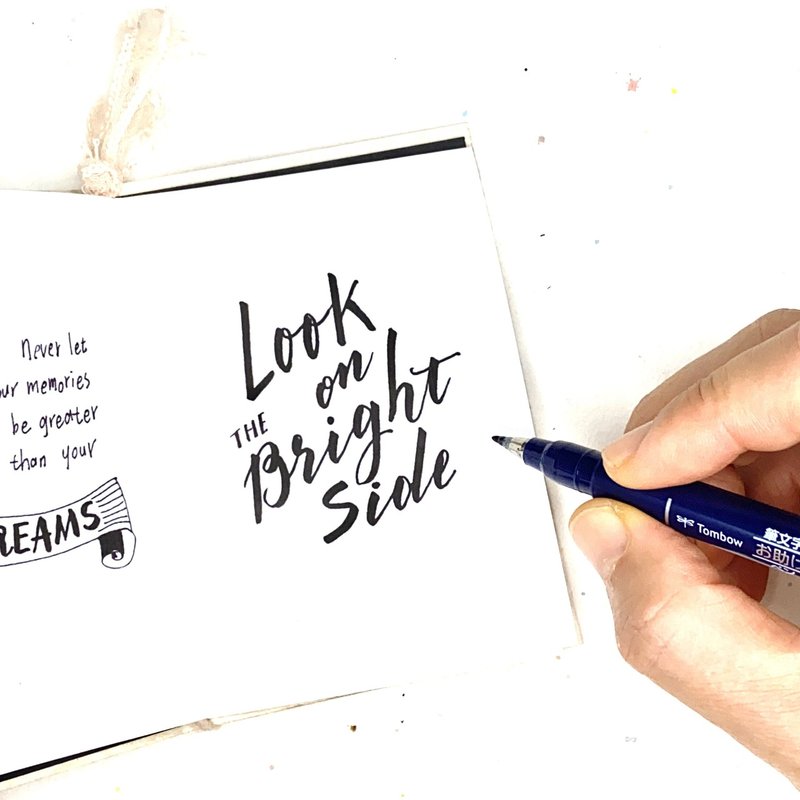 Never let
our memories
be greater
than your
REAMS
Look
on
THE
Bright
Side
Tombow
筆文字
お助け